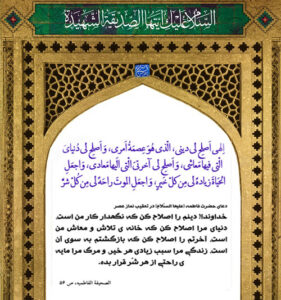 السَّلامُ عَلَيْكِ أَيَّتُهَا الصِّدِّيقَةُ الشَّهِيدَةُ
اِلهي اَصلِح لي ديني، الَّذي هُوَ عِصمَةُ اَمري، وَ اَصلِح لي دُنيايَ
الَّتي فيها مَعاشي، وَ اَصلِح لي آخِرَتِيَ الَّتي اِلَيها مَعادي، وَ اجعَلِ
الحَياةَ زِيادَةً لي مِن كُلِّ خَيرٍ، وَ اجعَلِ المَوتَ راحَةً لي مِن كُلِّ شَرٍّ
دعای حضرت فاطمه (علیها السلام) در تعقیب نماز عصر
خداوندا! دینم را اصلاح کن که نگهدار کار من است.
دنیای مرا اصلاح کن که خانه ی تلاش و معاش من
است. آخرتم را اصلاح کن که بازگشتم به سوی آن
است. زندگی مرا سبب زیادی هر خیر و مرگ مرا مایه
ی راحتی از هر شر قرار بده.
الصحیفة الفاطمیه، ص ۵۶